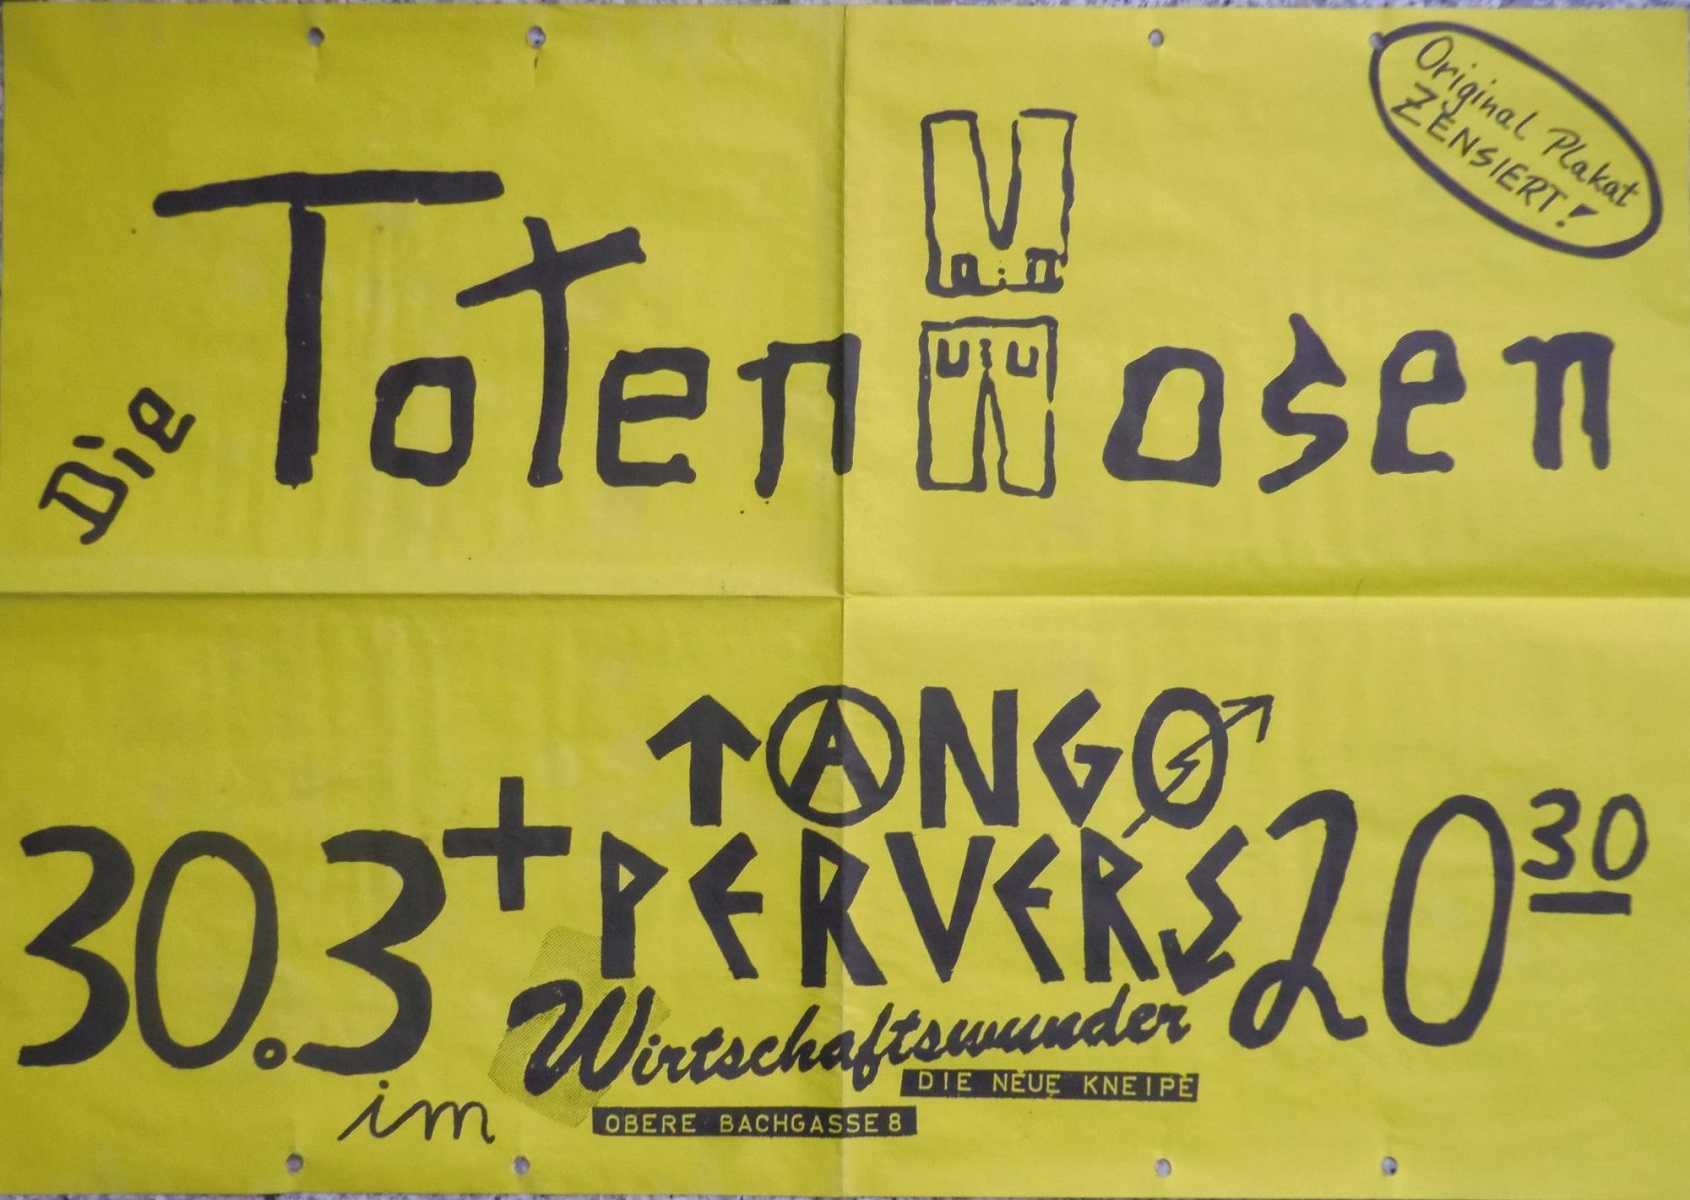 Original Plakat
ZENSIERT!
Die Toten Hosen
30.3. + TANGO
PERVERS 20 30
im Wirtschaftswunder
DIE NEUE KNEIPE
OBERE BACHGASSE 8